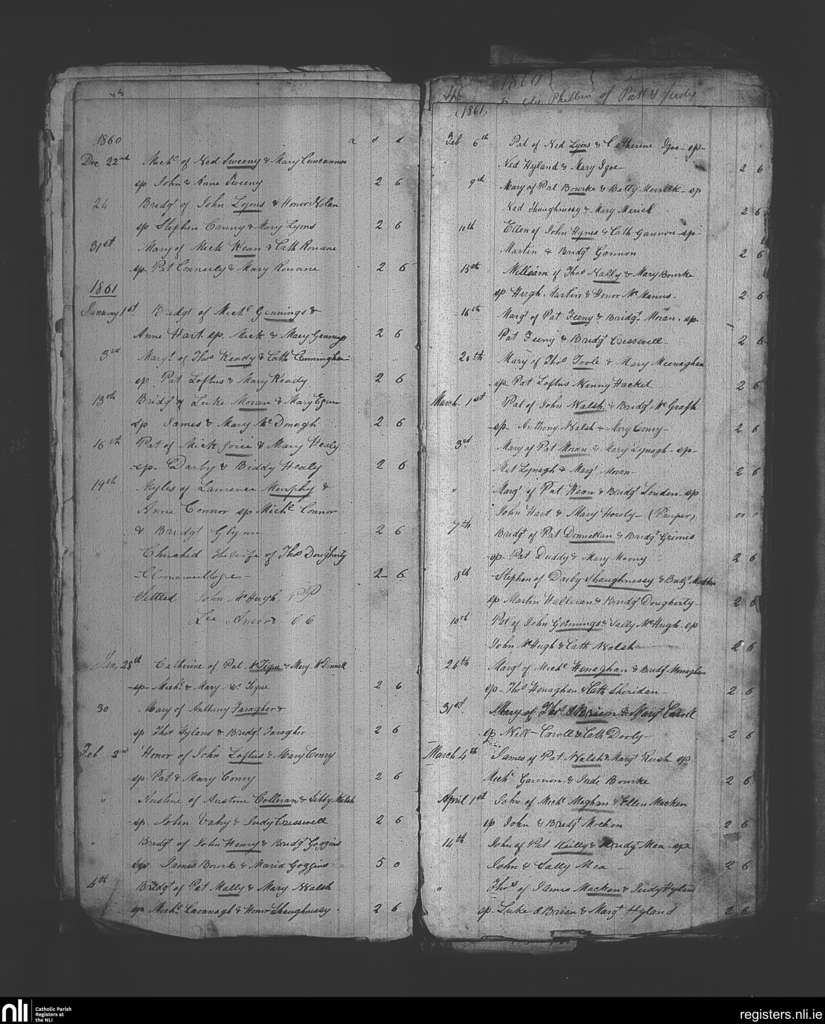 1860
Dec 22nd Michl of Ned Sweeny & Mary Concannon
sp John & Anne Sweeny 2 6
24 Bridgt of John Lyons & Honor Nolan
sp Stephen Canny & Mary Lyons 2 6
31st Mary of Mick Kean & Cath Ronane
sp. Pat Connerly & Mary Ronane 2 6
1861
January 1st Bridgt of Michl Gennings &
Anne Hart sp. Mick & Mary Gennings 2 6
3rd Margt of Thos Keady & Cath Cunningham
sp. Pat Loftus & Mary Keady 2 6
13th Bridgt of Luke Moran & Mary Egan
sp James & Mary McDonogh 2 6
16th Pat of Mick Joice & Mary Healy
sp. Darby & Biddy Healy 2 6
19th Myles of Laurence Murphy &
Anne Connor sp Michl Connor
& Bridgt Glynn 2 6
Churched the wife of Thos Dougherty
2 6
Settled John McHugh PP
CC
Jan, 28th Catherine of Pat McTigue & Mary
sp Michl & Mary McTigue 2 6
30 Mary of Anthony Faragher &
sp Thos Hylans & Bridgt Faragher 2 6
Feb 2nd Honor of John Loftus & Mary Conry
sp Pat & Mary Conry 2 6
" Austine of Austine Colleran & Sibby Walsh
sp. John Vahy & Judy Cresswell 2 6
" Bridgt of John Henry & Bridgt Goggins
sps James Bourke & Maria Goggins 5 0
4th Bridgt of Pat Mally & Mary Walsh
sp Michl Cavanagh & Honor Shaughnessy 2 6
1860
Children of Patt & Judy
1861.
Feb 6th Pat of Ned Lyons & Catherine Igoe sp
Ned Hyland & Mary Igoe 2 6
9th Mary of Pat Bourke & Betty Merrick sp
Ned Shaughnessy & Mary Merick 2 6
10th Ellen of John Hynes & Cath Gannon sp
Martin & Bridgt Gannon 2 6
15th William of Thos Nally & Mary Bourke
sp Hugh Martin & Honor McManus 2 6
16th Margt of Pat Feeny & Bridgt Moran sp.
Pat Feeny & Bridgt Cresswell 2 6
20th Mary of Thos Toole & Mary Meenaghan
sp Pat Loftus Nanny Hacket 2 6
March 1st Pat of John Walsh & Bridgt McGrath
sp. Anthony Walsh & Mary Conry 2 6
3rd Mary of Pat Moran & Mary Lynagh sp
Pat Lynagh & Margt Moran 2 6
" Margt of Pat Kean & Bridgt Louden sp
John Hart & Mary Hourly (Pauper) 0 0
7th Bridgt of Pat Donnellan & Bridgt Grimes
sp Pat Duddy & Mary 2 6
8th Stephen of Darby Shaughnessy & Bridgt
sp Martin Halleran & Bridgt Dougherty 2 6
10th Pat of John Gennings & Sally McHugh sp
John McHugh & Cath Walsh 2 6
24th Margt of Michl Henaghan & Bridgt Monaghan
sp. Thos Henaghan & Cath Sheridan 2 6
31st Mary of Thos OBrien & Margt Caroll
sp Nell Caroll & Cath Dooly 2 6
March 4th James of Pat Walsh & Margt Rush sp
Michl Gannon & Jude Bourke 2 6
April 1st John of Michl Meghan & Ellen Macken
sp John & Bridgt Mochan 2 6
14th John of Pat Reilly & Bridgt Mea sps
John & Sally Mea 2 6
" Thos of James Macken & Judy Hyland
sp. Luke OBrien & Margt Hyland 2 6
nli Catholic Parish Registers at the NLI
registers.nli.ie